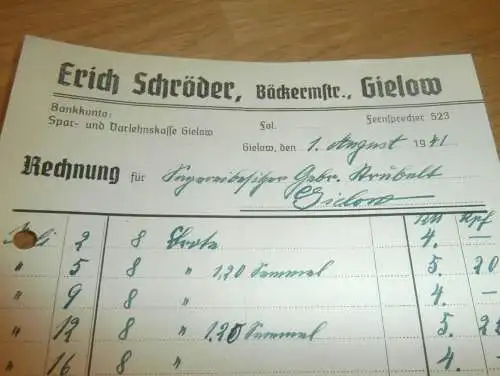 Erich Schröder, Bäckermstr., Gielow
Bankkonto:
Spar- und Darlehnskasse Gielow
Fol.
Fernsprecher 523
Gielow, den 1. August 1941
Rechnung für Sägereibesitzer Gebr. Strübelt
Gielow
RM Rpf
Juli 2 8 Brote 4. —
" 5 8 " 1,20 Semmel 5. 20
" 9 8 " 4. —
" 12 8 " 1.25 Semmel 5. 25
" 16 8 " 4.